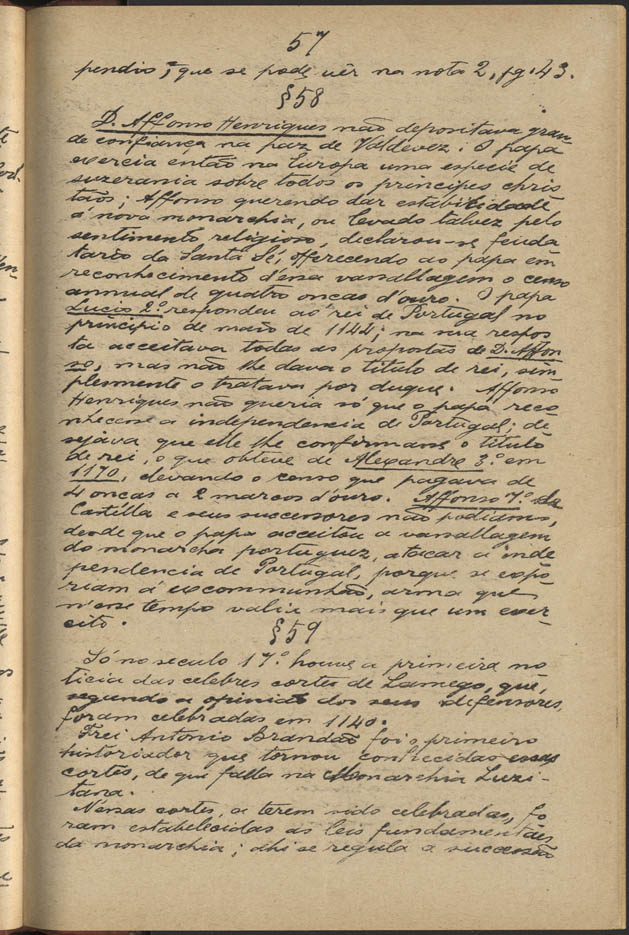 57
pendio, que se pode vêr na nota 2, pg. 43.
§58
D. Affonso Henriques não depositava gran-
de confiança na paz de Valdevez; O papa
exercia então na Europa uma especie de
suzerania sobre todos os principes chris
tãos; Affonso querendo dar estabilidade
á nova monarchia, ou levado talvez pelo
sentimento religioso, declarou-se feuda
tario da Santa Sé, offerecendo ao papa em
reconhecimento d'essa vassallagem o censo
annual de quatro onças d'ouro. O papa
Lucio 2º. respondeu ao rei de Portugal no
principio de maio de 1144; na sua respos
ta acceitava todas as propostas de D. Affon
so, mas não lhe dava o titulo de rei, sim
plesmente o tratava por duque. Affonso
Henriques não queria só que o papa reco
nhecesse a independencia de Portugal; de
sejava que elle lhe confirmasse o titulo
de rei, o que obteve de Alexandre 3º. em
1170, elevando o censo que pagava de
4 onças a 2 marcos d'ouro. Affonso 7º. de
Castilla e seus successores não podiam,
desde que o papa acceitou a vassallagem
do monarcha portuguez, atacar a inde
pendencia de Portugal, porque se expo
riam á excommunhão, arma que
n'esse tempo valia mais que um exer-
cito.
§59
Só no seculo 17º. houve a primeira no
ticia das celebres cortes de Lamego, que,
segundo a opinião dos seus defensores,
foram celebradas em 1140.
Frei Antonio Brandão foi o primeiro
historiador que tornou conhecidas essas
cortes, de que falla na Monarchia Luzi-
tana.
Nessas cortes, a terem sido celebradas, fo
ram estabelecidas as leis fundamentaes
da monarchia; ahi se regula a successão